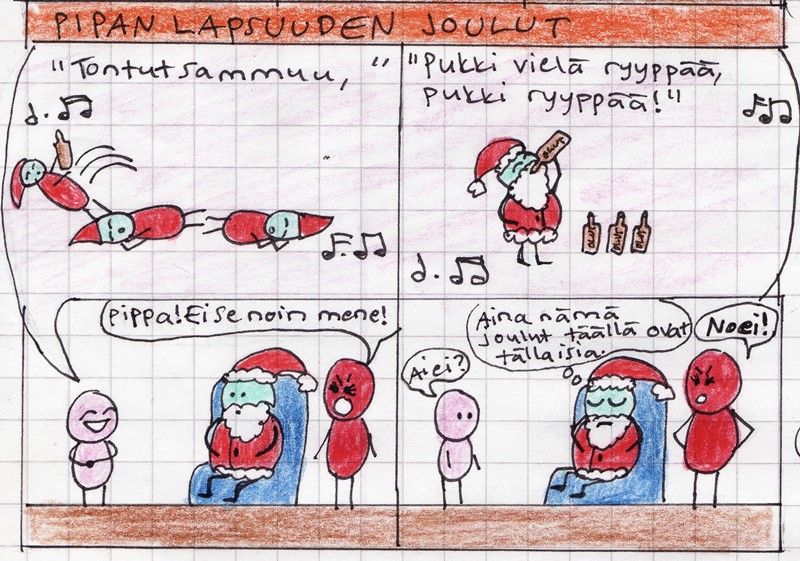 PIPAN LAPSUUDEN JOULUT
"Tontut sammuu,"
"Pukki vielä ryyppää,
pukki ryyppää!"
OLUT
OLUT
OLUT
OLUT
Pippa! Ei se noin mene!
Aina nämä
joulut täällä ovat
tällaisia.
Noei!
Aiei?